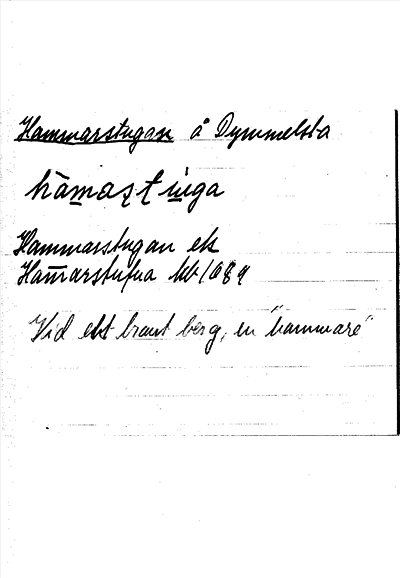 Hammarstugan å Dymmelsta
hàmaștùga
Hammarstugan ek
Ham̅arstufva kb 1689
Vid ett brant berg, en "hammare"